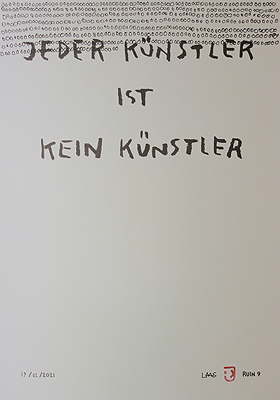 JEDER KÜNSTLER
IST
KEIN KÜNSTLER
17/01/2021
LAAS
RUIN 9